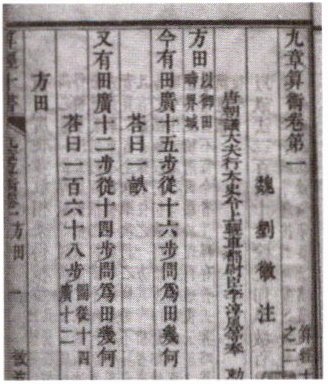 九章算術卷第一
魏 劉徽 注
唐朝議大夫行太史令上輕車都尉臣李淳風等奉 勅
方田 以御田疇界域
今有田廣十五步從十六步問為田幾何
荅曰一畝
又有田廣十二步從十四步問為田幾何
荅曰一百六十八步 圖從十四廣十二
方田
方田 一